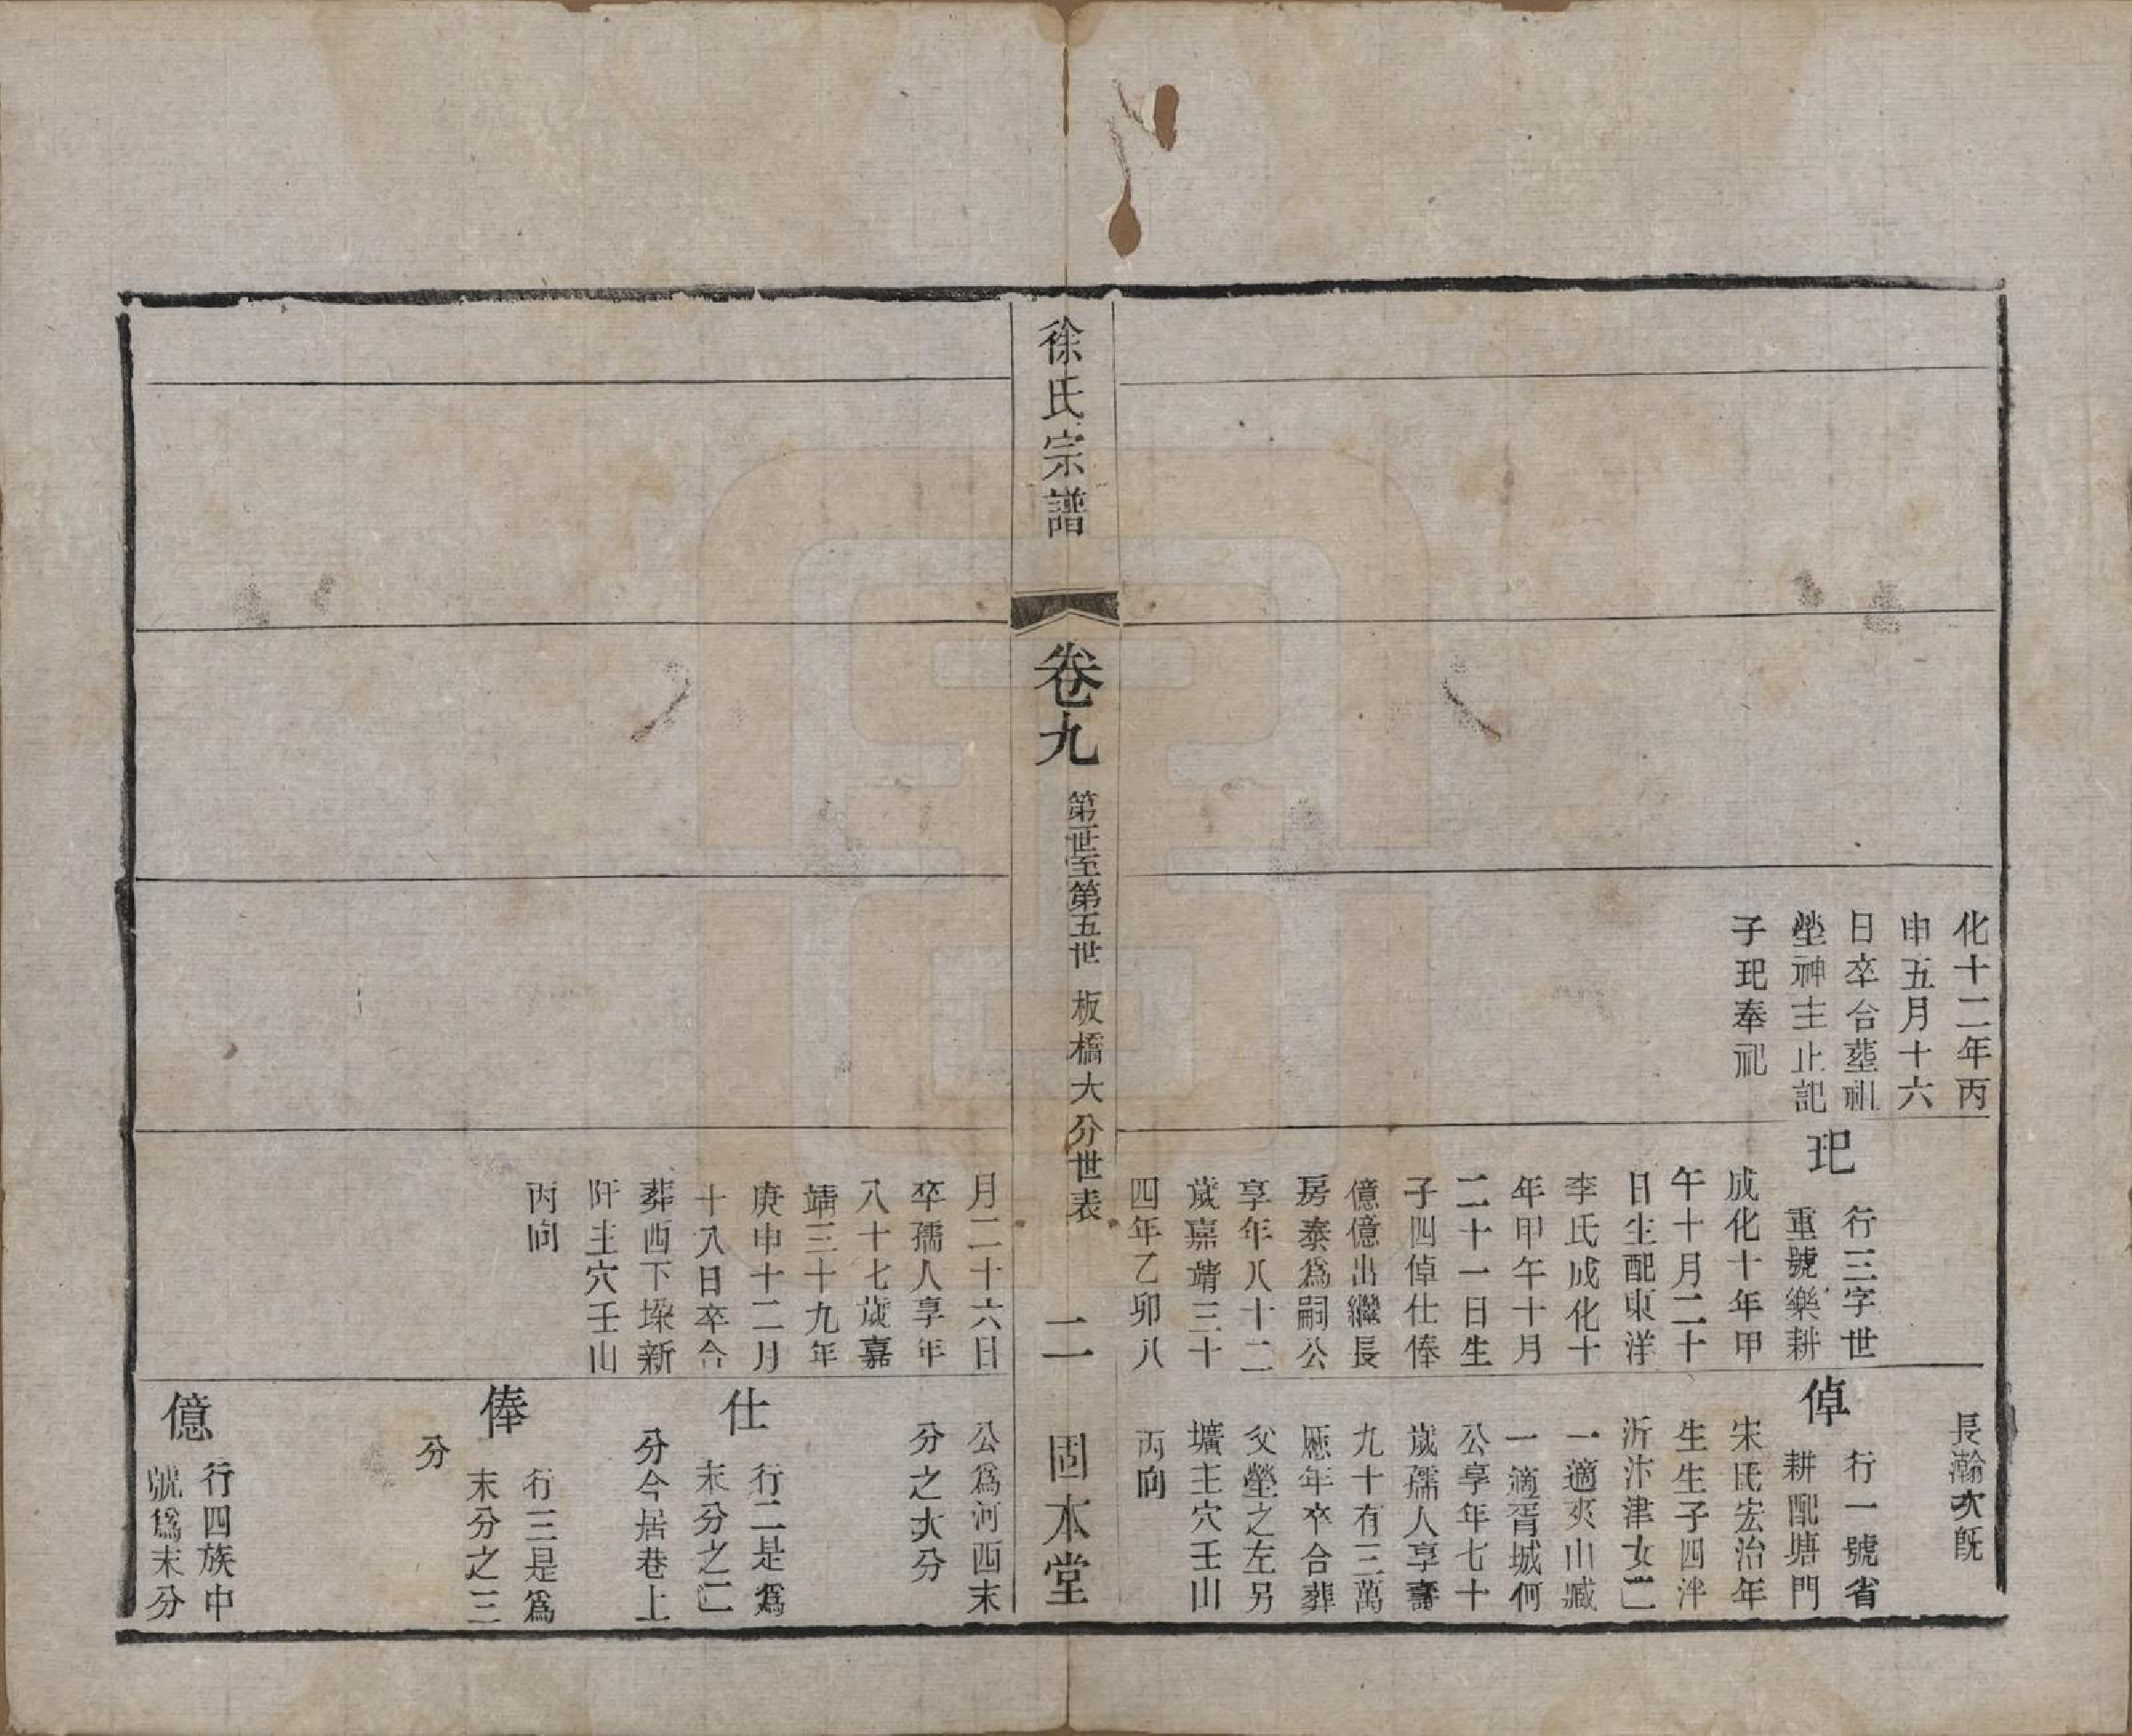 化十二年丙
申五月十六
日卒合塟祖
塋神主止記
子玘奉祀
玘
行三字世
重號樂耕
成化十年甲
午十月二十
日生配東洋
李氏成化十
年甲午十月
二十一日生
子四倬仕俸
億億出繼長
房泰為嗣公
享年八十二
歲嘉靖三十
四年乙卯八
長瀚次旣
倬
行一號省
耕配塘門
宋氏宏治年
生生子四泮
沂汴津女二
一適夾山臧
一適胥城何
公享年七十
歲孺人享壽
九十有三萬
厯年卒合葬
父塋之左另
壙主穴壬山
丙向
徐氏宗譜
卷九
第一世至第五世 板橋大分世表
二
固本堂
月二十六日
卒孺人享年
八十七歲嘉
靖三十九年
庚申十二月
十八日卒合
葬西下埰新
阡主穴壬山
丙向
公為河西末
分之大分
仕
行二是為
末分之二
分今居巷上
俸
行三是為
末分之三
分
億
行四族中
號為末分